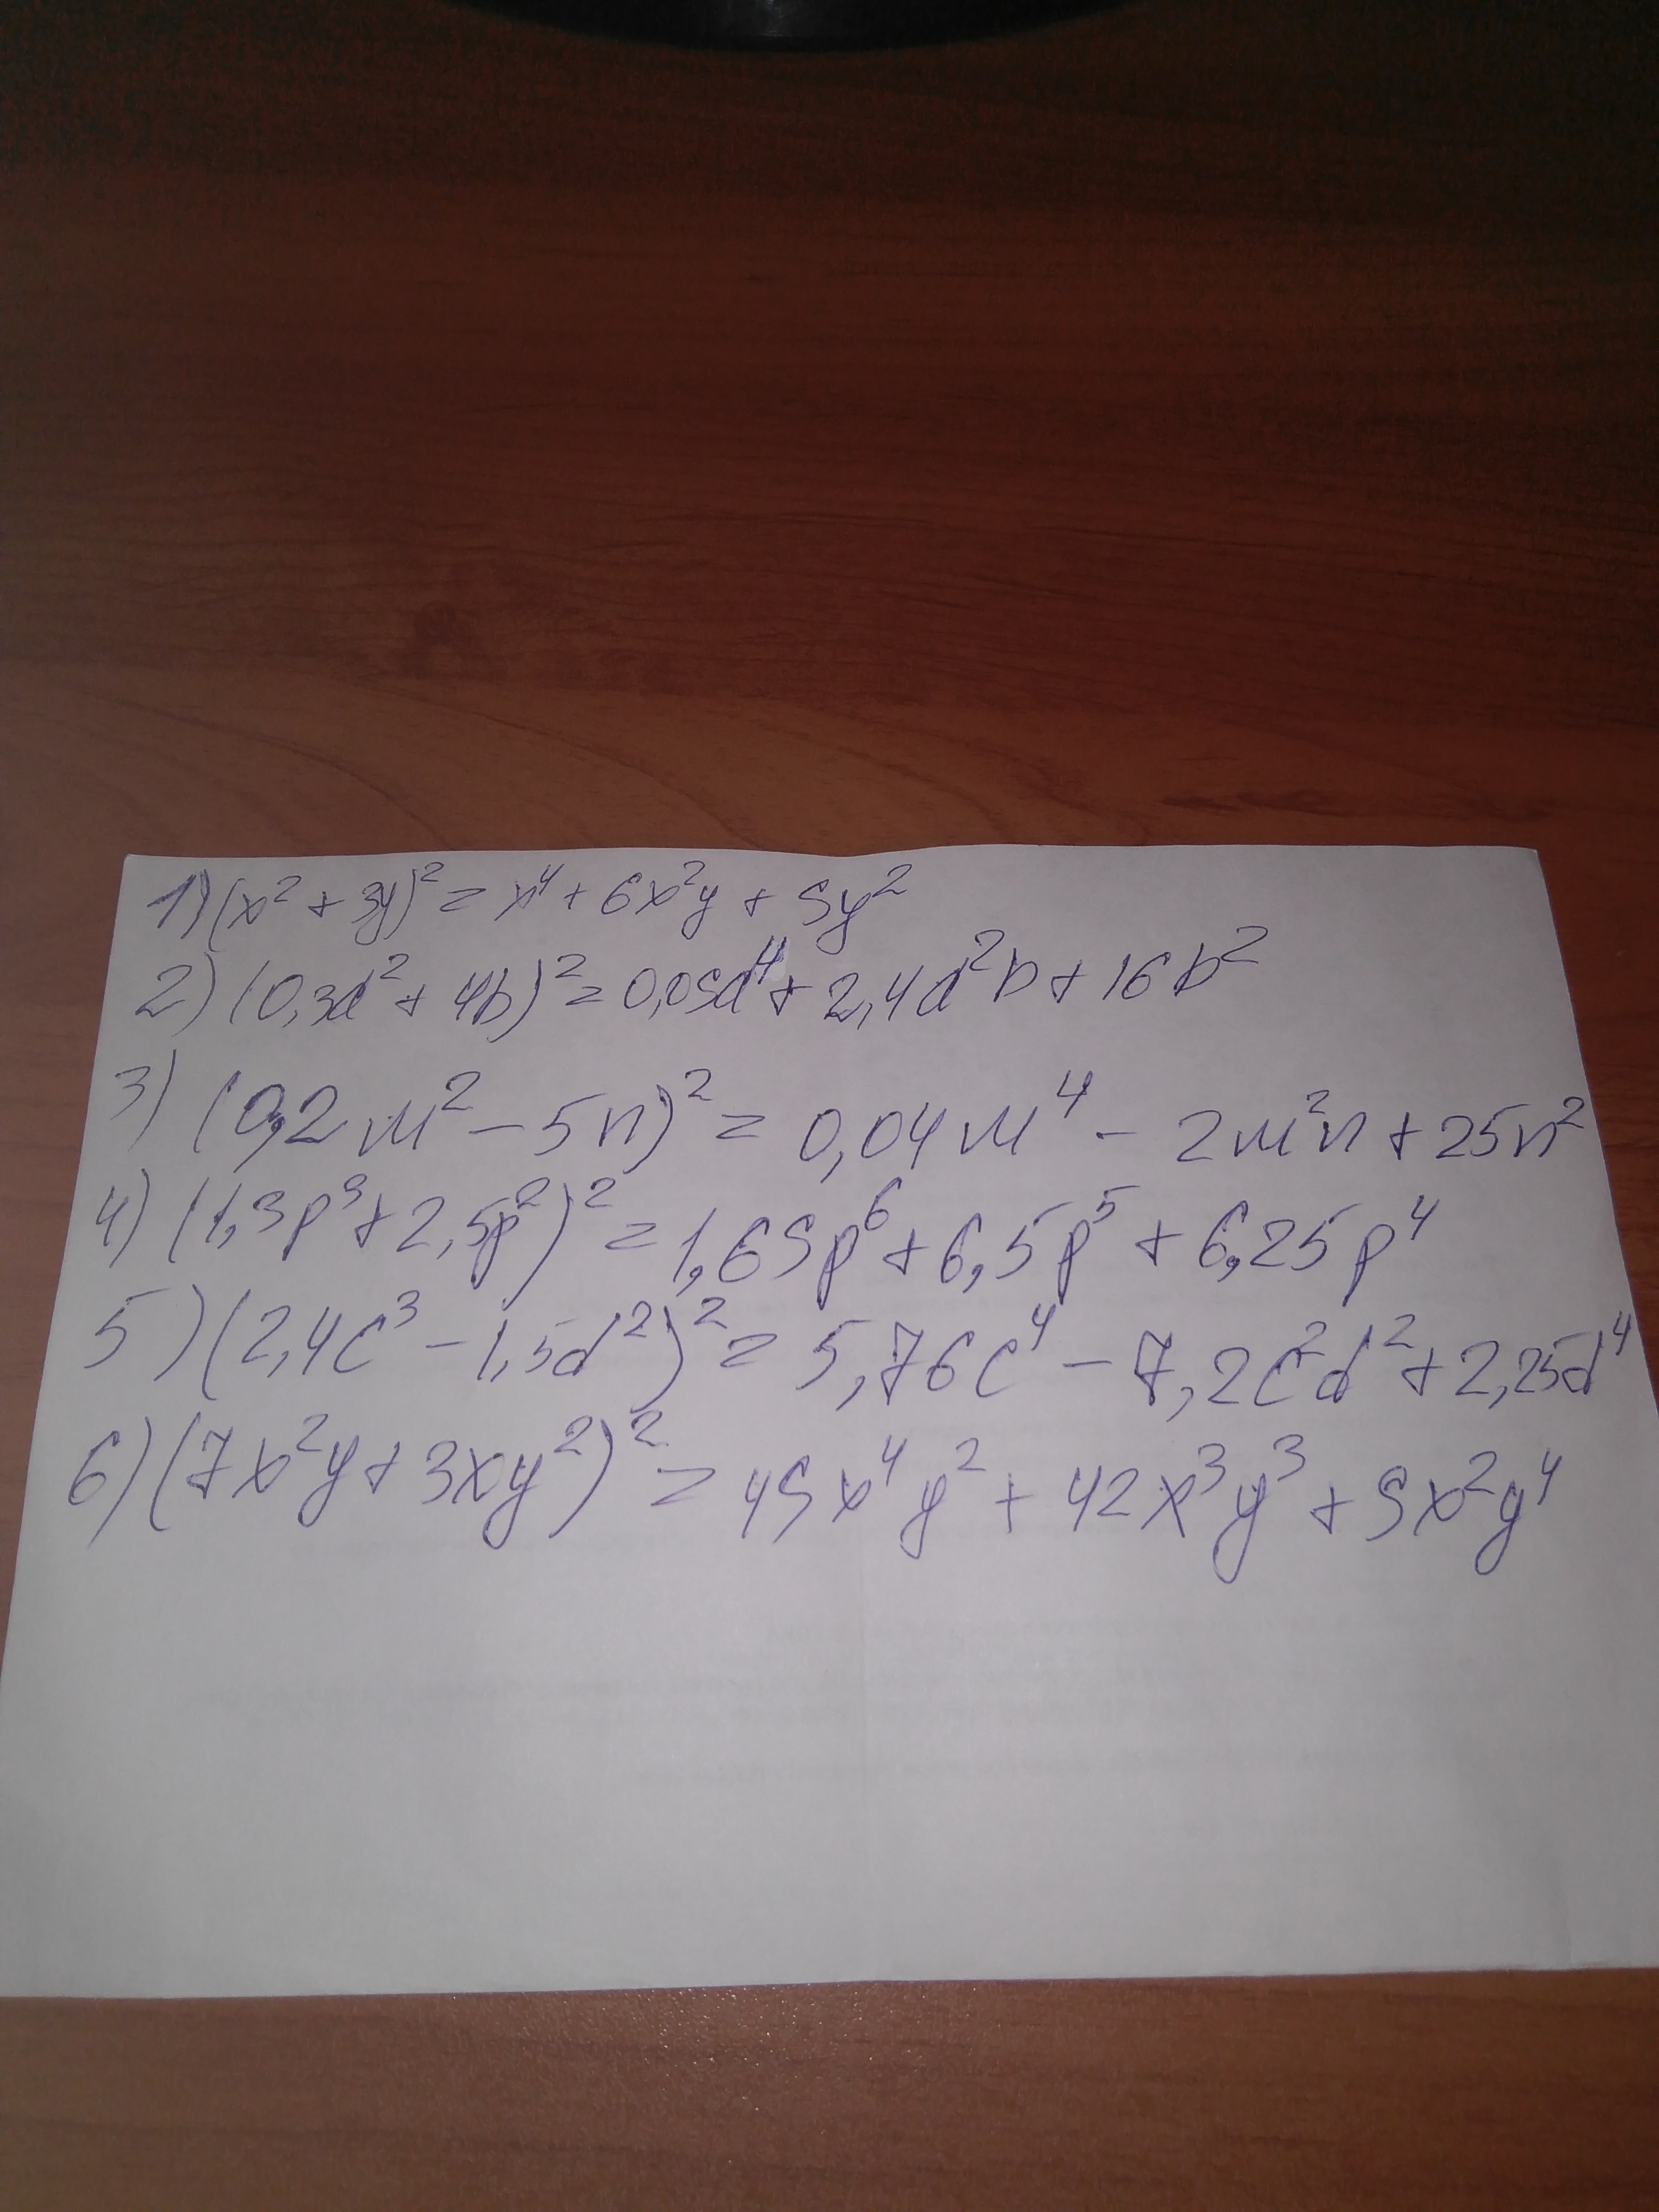 1) (x² + 3y)² = x⁴ + 6x²y + 9y²
2) (0,3d² + 4b)² = 0,09d⁴ + 2,4d²b + 16b²
3) (0,2m² - 5n)² = 0,04m⁴ - 2m²n + 25n²
4) (1,3p³ + 2,5p²)² = 1,69p⁶ + 6,5p⁵ + 6,25p⁴
5) (2,4c³ - 1,5d²)² = 5,76c⁴ - 7,2c²d² + 2,25d⁴
6) (7x²y + 3xy²)² = 49x⁴y² + 42x³y³ + 9x²y⁴